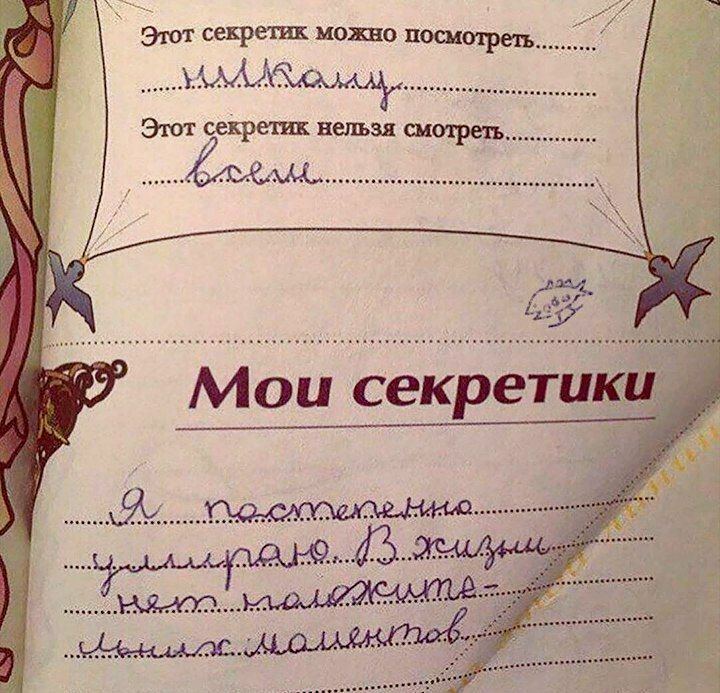 Этот секретик можно посмотреть..........
никому
Этот секретик нельзя смотреть..............
всем
Мои секретики
Я постепенно
умираю. В жизни
нет положите-
льних моментов